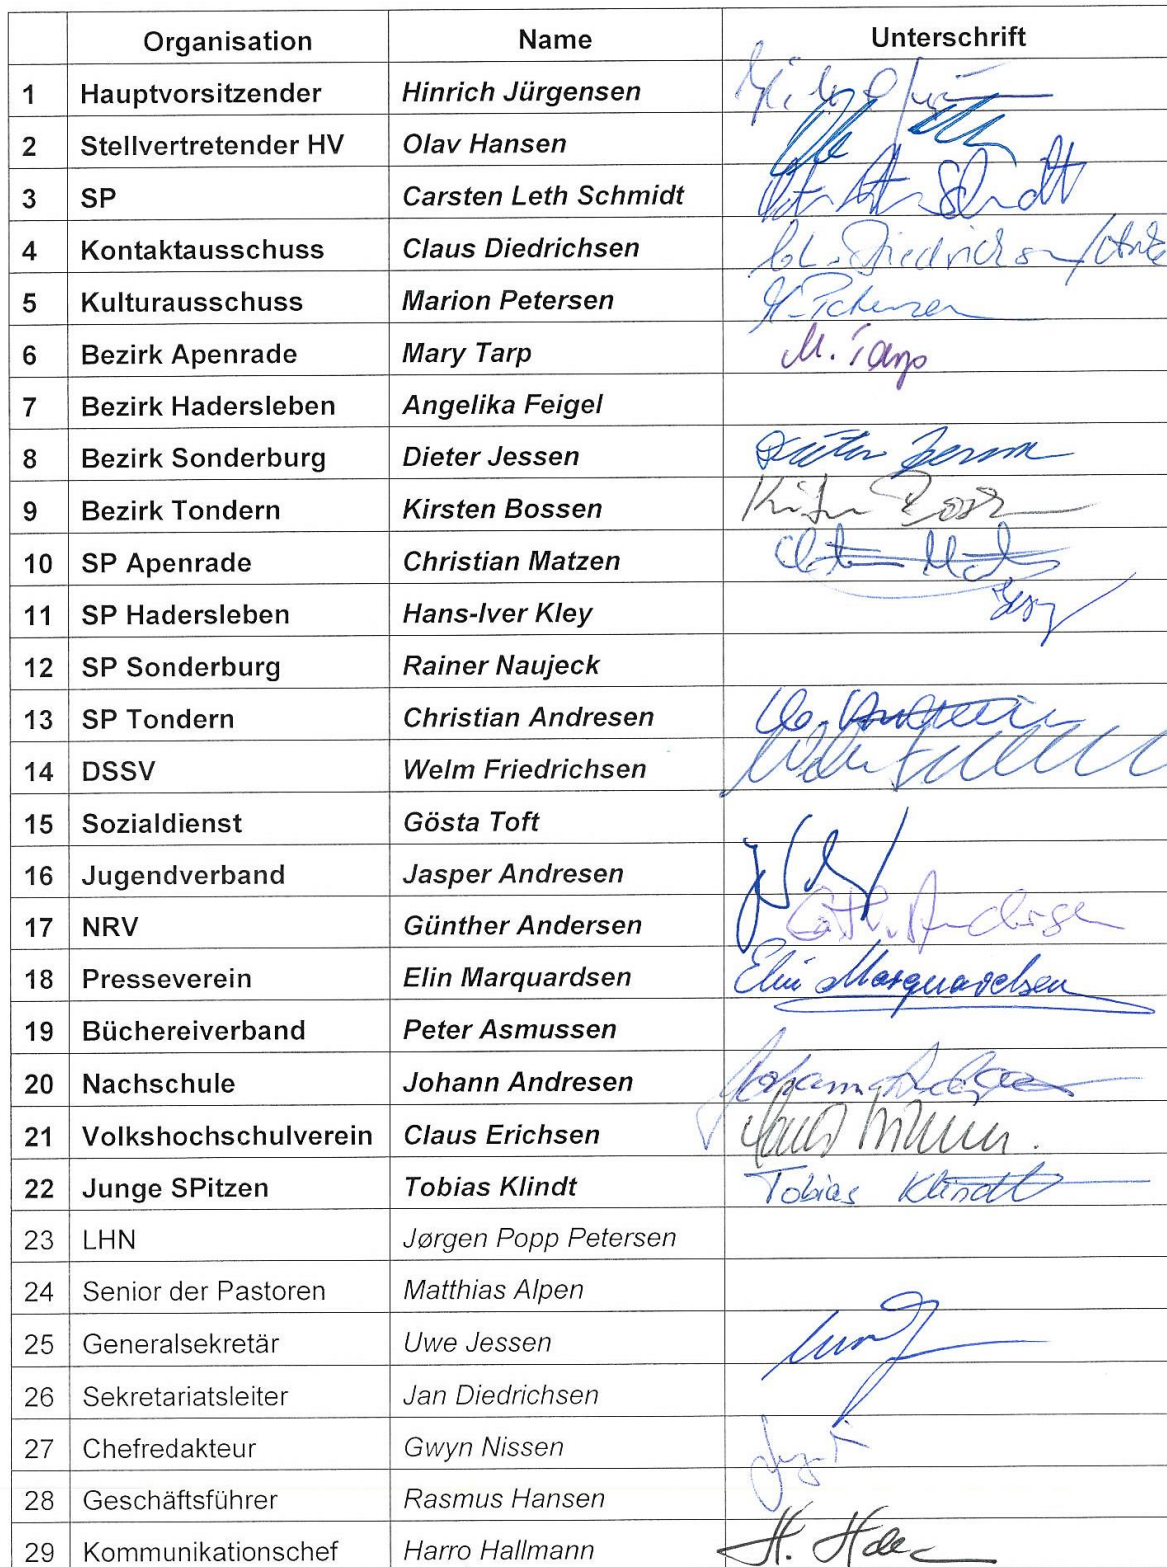 Organisation Name Unterschrift
1 Hauptvorsitzender Hinrich Jürgensen
2 Stellvertretender HV Olav Hansen
3 SP Carsten Leth Schmidt Schmidt
4 Kontaktausschuss Claus Diedrichsen Cl. Diedrichsen
5 Kulturausschuss Marion Petersen M. Petersen
6 Bezirk Apenrade Mary Tarp M. Tarp
7 Bezirk Hadersleben Angelika Feigel
8 Bezirk Sonderburg Dieter Jessen Dieter Jessen
9 Bezirk Tondern Kirsten Bossen
10 SP Apenrade Christian Matzen
11 SP Hadersleben Hans-Iver Kley
12 SP Sonderburg Rainer Naujeck
13 SP Tondern Christian Andresen
14 DSSV Welm Friedrichsen
15 Sozialdienst Gösta Toft
16 Jugendverband Jasper Andresen
17 NRV Günther Andersen Andersen
18 Presseverein Elin Marquardsen Elin Marquardsen
19 Büchereiverband Peter Asmussen
20 Nachschule Johann Andresen Johann Andresen
21 Volkshochschulverein Claus Erichsen
22 Junge SPitzen Tobias Klindt Tobias Klindt
23 LHN Jørgen Popp Petersen
24 Senior der Pastoren Matthias Alpen
25 Generalsekretär Uwe Jessen
26 Sekretariatsleiter Jan Diedrichsen
27 Chefredakteur Gwyn Nissen
28 Geschäftsführer Rasmus Hansen
29 Kommunikationschef Harro Hallmann